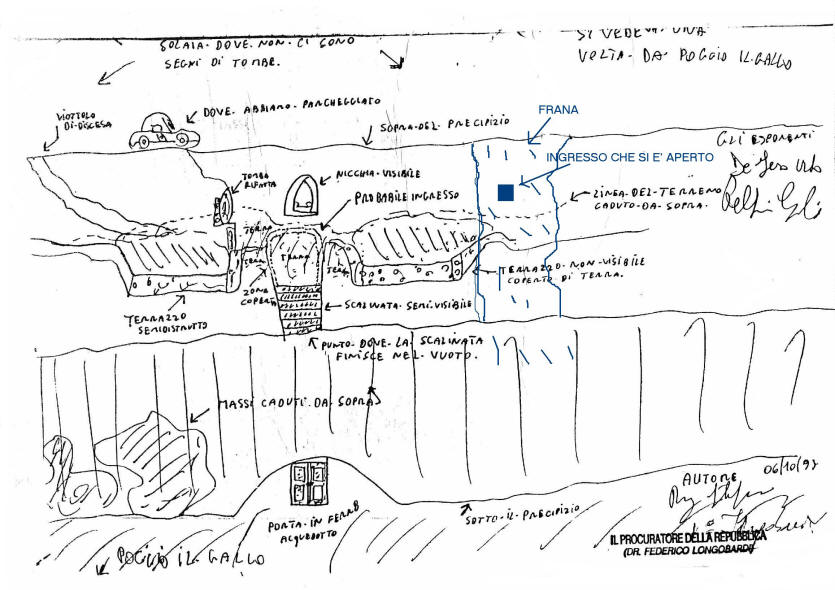 SI VEDEVA UNA
VOLTA - DA - POGGIO IL - GALLO
SOLAIA - DOVE - NON - CI SONO
SEGNI DI TOMBE.
VIOTTOLO
DI - DISCESA
DOVE - ABBIAMO - PARCHEGGIATO
SOPRA - DEL - PRECIPIZIO
FRANA
INGRESSO CHE SI E' APERTO
GLI ESPONENTI
TOMBA
RIFATTA
NICCHIA - VISIBILE
PROBABILE INGRESSO
LINEA - DEL - TERRENO
CADUTO - DA - SOPRA.
TERRA
TERRA
TERRA
TERRA
ZONA
COPERTA
TERRAZZO - NON - VISIBILE
COPERTO DI TERRA.
TERRAZZO
SEMIDISTRUTTO
SCALINATA - SEMI - VISIBILE
PUNTO - DOVE - LA - SCALINATA
FINISCE NEL - VUOTO.
MASSI CADUTI - DA - SOPRA
PORTA - IN FERRO
ACQUEDOTTO
SOTTO - IL - PRECIPIZIO
AUTORE
POGGIO IL - GALLO
IL PROCURATORE DELLA REPUBBLICA
(DR. FEDERICO LONGOBARDI)